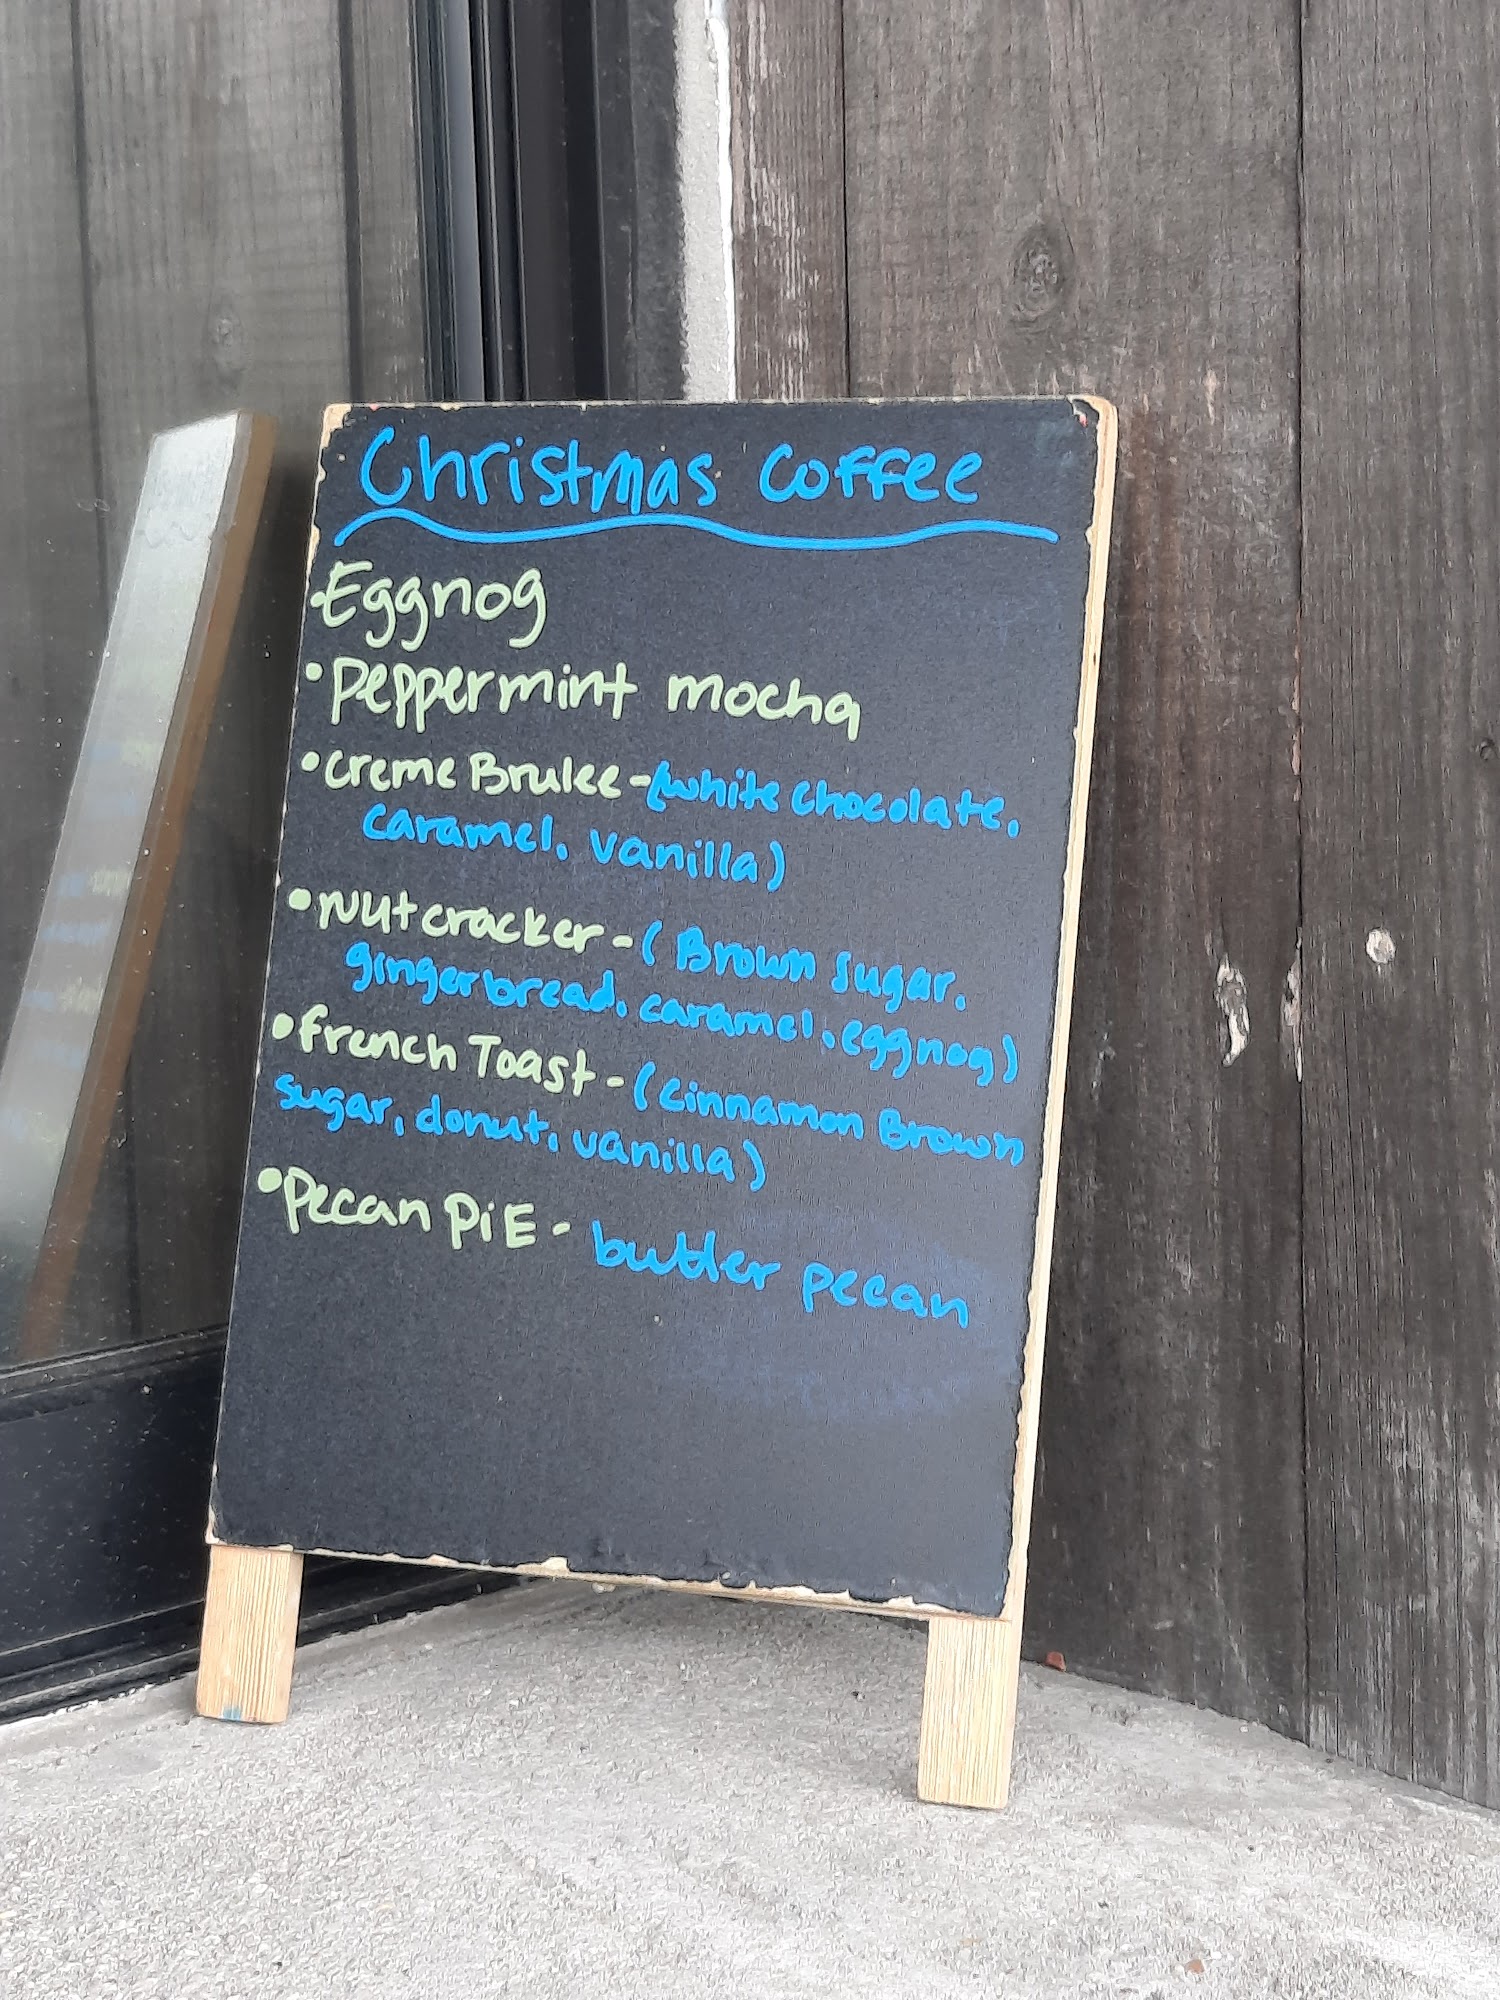 Christmas Coffee
•Eggnog
•Peppermint mocha
•Creme Brulee-(white chocolate,
caramel, vanilla)
•Nutcracker-(Brown sugar,
gingerbread, caramel, eggnog)
•french Toast-(cinnamon Brown
sugar, donut, vanilla)
•Pecan PiE- butter pecan